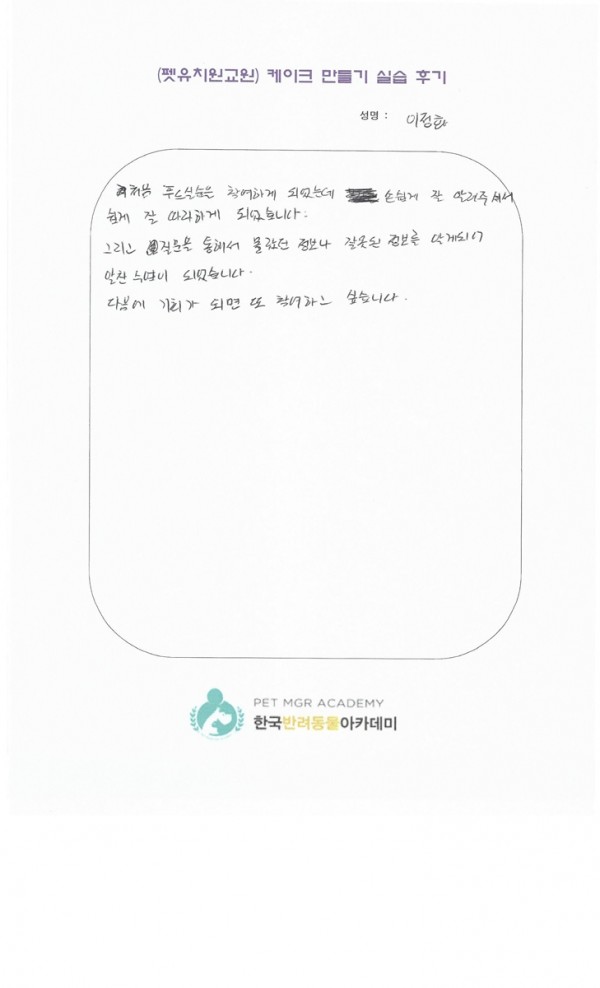 (펫유치원교원) 케이크 만들기 실습 후기
성명 : 이정효
처음 푸드실습은 참여하게 되었는데 손쉽게 잘 알려주셔서
쉽게 잘 따라하게 되었습니다.
그리고 질문을 통해서 몰랐던 정보나 잘못된 정보를 알게되어
알찬 수업이 되었습니다.
다음에 기회가 되면 또 참여하고 싶습니다.
PET MGR ACADEMY
한국반려동물아카데미